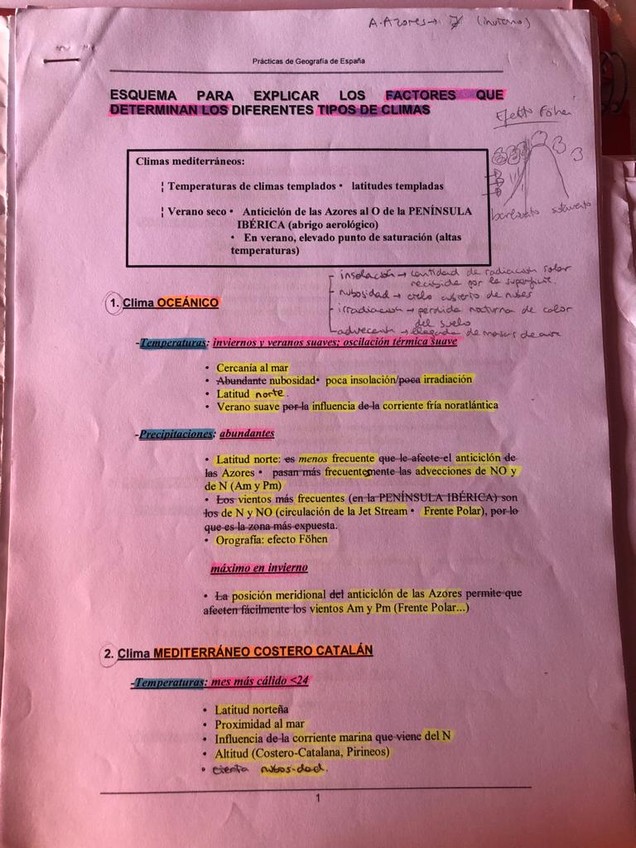 A. Azores → (invierno)
Prácticas de Geografía de España
ESQUEMA PARA EXPLICAR LOS FACTORES QUE
DETERMINAN LOS DIFERENTES TIPOS DE CLIMAS
Efecto Föhen
Climas mediterráneos:
¦ Temperaturas de climas templados • latitudes templadas
¦ Verano seco • Anticiclón de las Azores al O de la PENÍNSULA
IBÉRICA (abrigo aerológico)
• En verano, elevado punto de saturación (altas
temperaturas)
barlovento sotavento
- insolación → cantidad de radiación solar
recibida por la superficie.
- nubosidad → cielo cubierto de nubes
- irradiación → perdida nocturna de calor
del suelo
- advección → llegada de masas de aire
1. Clima OCEÁNICO
-Temperaturas: inviernos y veranos suaves; oscilación térmica suave
• Cercanía al mar
• Abundante nubosidad• poca insolación/poca irradiación
• Latitud norte.
• Verano suave por la influencia de la corriente fría noratlántica
-Precipitaciones: abundantes
• Latitud norte: es menos frecuente que le afecte el anticiclón de
las Azores • pasan más frecuentemente las advecciones de NO y
de N (Am y Pm)
• Los vientos más frecuentes (en la PENÍNSULA IBÉRICA) son
los de N y NO (circulación de la Jet Stream • Frente Polar), por lo
que es la zona más expuesta.
• Orografía: efecto Föhen
máximo en invierno
• La posición meridional del anticiclón de las Azores permite que
afecten fácilmente los vientos Am y Pm (Frente Polar...)
2. Clima MEDITERRÁNEO COSTERO CATALÁN
-Temperaturas: mes más cálido <24
• Latitud norteña
• Proximidad al mar
• Influencia de la corriente marina que viene del N
• Altitud (Costero-Catalana, Pirineos)
• cierta nubosidad.
1